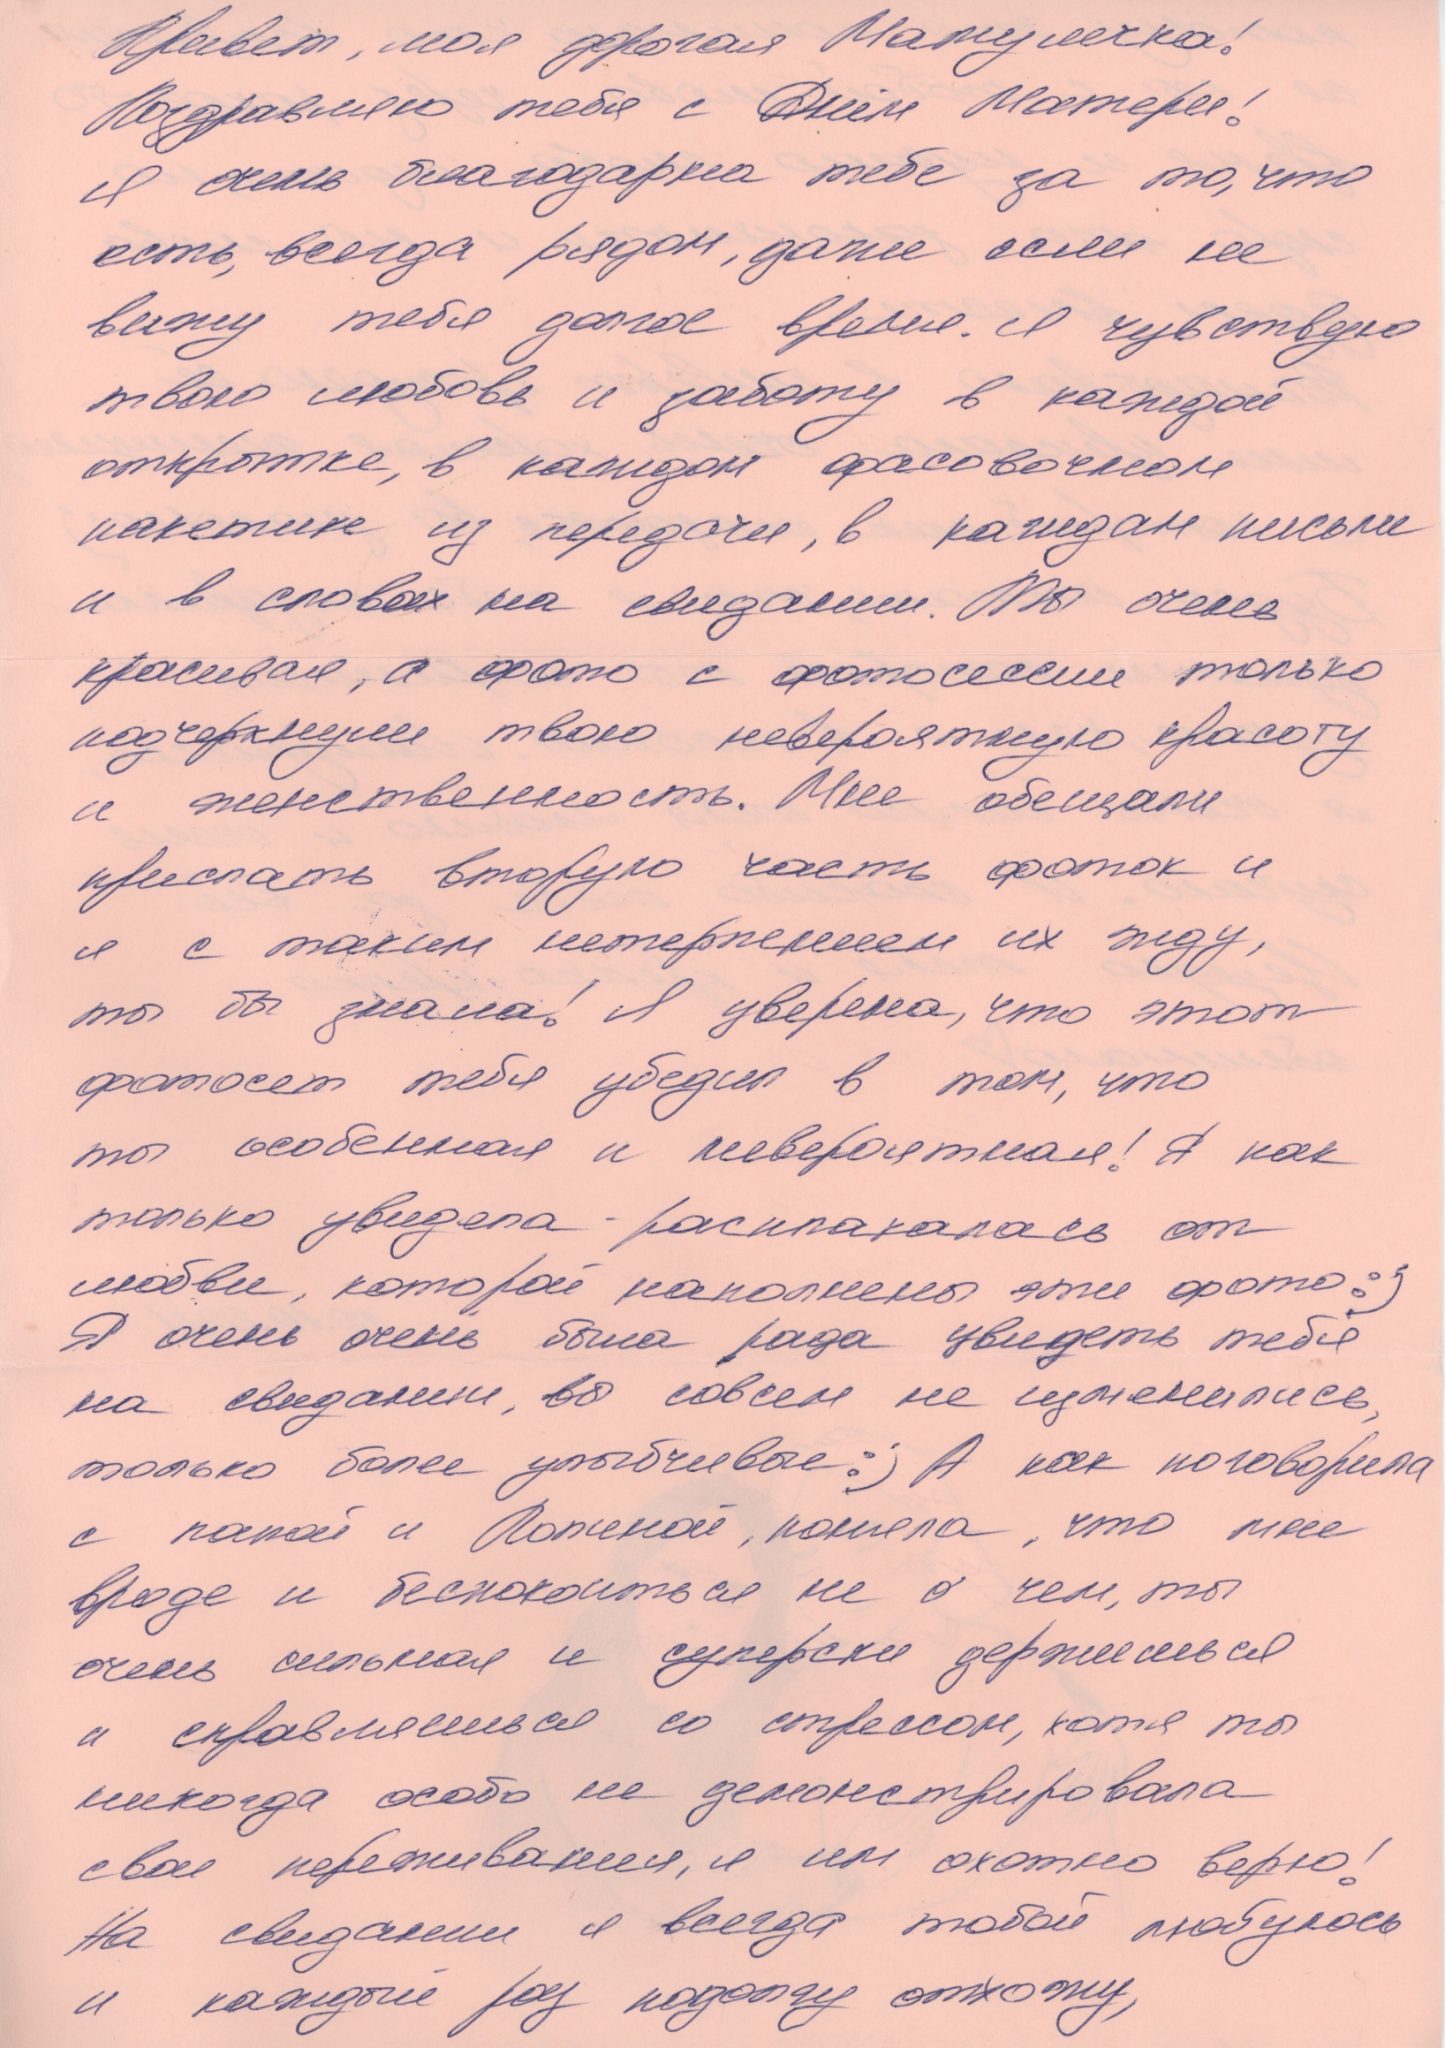 Привет, моя дорогая Мамулечка!
Поздравляю тебя с Днём Матери!
Я очень благодарна тебе за то, что
есть, всегда рядом, даже если не
вижу тебя долгое время. Я чувствую
твою любовь и заботу в каждой
открытке, в каждом фасовочном
пакетике из передачи, в каждом письме
и в словах на свидании. Ты очень
красивая, а фото с фотосессии только
подчеркнули твою невероятную красоту
и женственность. Мне обещали
прислать вторую часть фоток и
я с таким нетерпением их жду,
ты бы знала! Я уверена, что этот
фотосет тебя убедил в том, что
ты особенная и невероятная! Я как
только увидела - расплакалась от
любви, которой наполнены эти фото:)
Я очень очень была рада увидеть тебя
на свидании, вы совсем не изменились,
только более улыбчивые:) А как поговорила
с папой и Полиной, поняла, что мне
вроде и беспокоиться не о чем, ты
очень сильная и суперски держишься
и справляешься со стрессом, хотя ты
никогда особо не демонстрировала
свои переживания, я им охотно верю!
На свидании я всегда тобой любуюсь
и каждый раз подолгу отхожу,